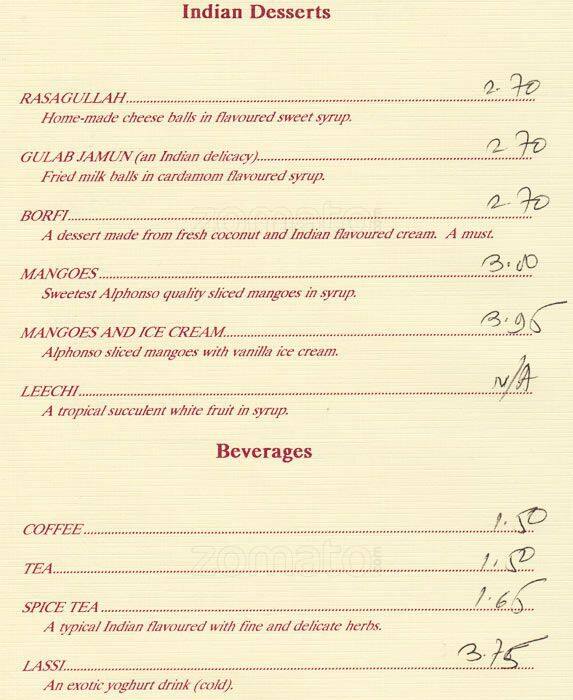 Indian Desserts
RASAGULLAH 2.70
Home-made cheese balls in flavoured sweet syrup.
GULAB JAMUN (an Indian delicacy) 2.70
Fried milk balls in cardamom flavoured syrup.
BORFI 2.70
A dessert made from fresh coconut and Indian flavoured cream. A must.
MANGOES 3.00
Sweetest Alphonso quality sliced mangoes in syrup.
MANGOES AND ICE CREAM 3.95
Alphonso sliced mangoes with vanilla ice cream.
LEECHI N/A
A tropical succulent white fruit in syrup.
Beverages
COFFEE 1.50
zomato
TEA 1.50
SPICE TEA 1.65
A typical Indian flavoured with fine and delicate herbs.
LASSI 3.75
An exotic yoghurt drink (cold).